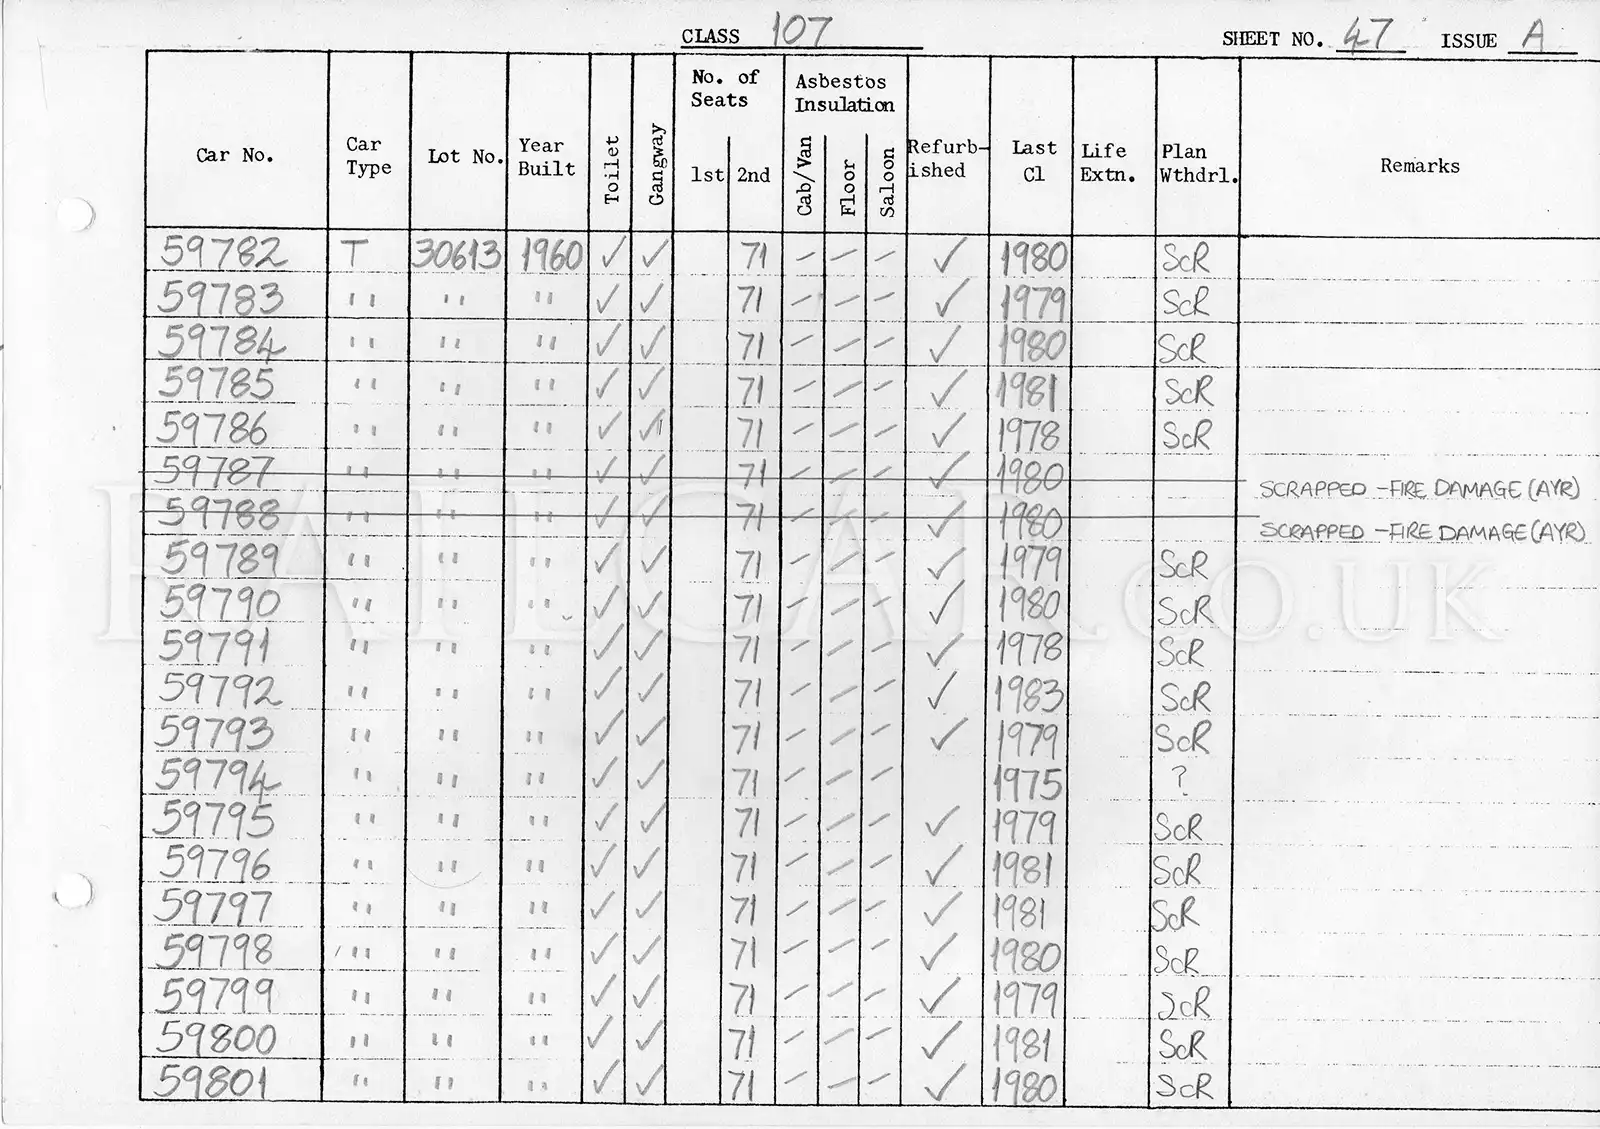 CLASS 107 SHEET NO. 47 ISSUE A
Car No. Car Type Lot No. Year Built Toilet Gangway No. of Seats 1st 2nd Asbestos Insulation Cab/Van Floor Saloon Refurb-ished Last Cl Life Extn. Plan Wthdrl. Remarks
59782 T 30613 1960 ✓ ✓ 71 – – – ✓ 1980 ScR
59783 " " " ✓ ✓ 71 – – – ✓ 1979 ScR
59784 " " " ✓ ✓ 71 – – – ✓ 1980 ScR
59785 " " " ✓ ✓ 71 – – – ✓ 1981 ScR
59786 " " " ✓ ✓ 71 – – – ✓ 1978 ScR
59787 " " " ✓ ✓ 71 – – – ✓ 1980 SCRAPPED – FIRE DAMAGE (AYR)
59788 " " " ✓ ✓ 71 – – – ✓ 1980 SCRAPPED – FIRE DAMAGE (AYR)
59789 " " " ✓ ✓ 71 – – – ✓ 1979 ScR
59790 " " " ✓ ✓ 71 – – – ✓ 1980 ScR
59791 " " " ✓ ✓ 71 – – – ✓ 1978 ScR
59792 " " " ✓ ✓ 71 – – – ✓ 1983 ScR
59793 " " " ✓ ✓ 71 – – – ✓ 1979 ScR
59794 " " " ✓ ✓ 71 – – – 1975 ?
59795 " " " ✓ ✓ 71 – – – ✓ 1979 ScR
59796 " " " ✓ ✓ 71 – – – ✓ 1981 ScR
59797 " " " ✓ ✓ 71 – – – ✓ 1981 ScR
59798 " " " ✓ ✓ 71 – – – ✓ 1980 ScR
59799 " " " ✓ ✓ 71 – – – ✓ 1979 ScR
59800 " " " ✓ ✓ 71 – – – ✓ 1981 ScR
59801 " " " ✓ ✓ 71 – – – ✓ 1980 ScR
RAILCAR.CO.UK